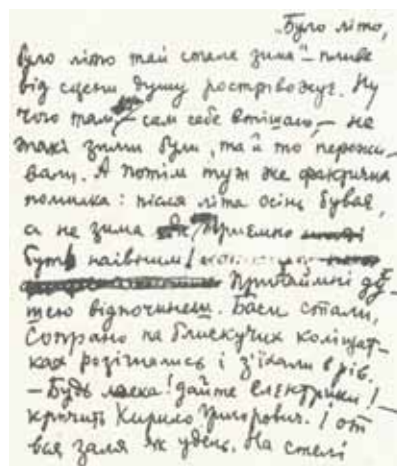 „Було літо,
було літо тай стала зима" – пливе
від сцени душу розтрівожує. Ну
чого там, – сам себе втішаю, – не
такі зими були, та й то пережи-
вали. А потім тут же фактична
помилка: після літа осінь буває,
а не зима Приємно
бути наївним!
Принаймні ду-
шею відпочинеш. Баси стали,
Сопрано на блискучих коліщат-
ках розігнались і з'їхали в рів.
– Будь ласка! дайте електрики! –
кричить Кирило Григорович. І от
вся заля як удень. На стелі